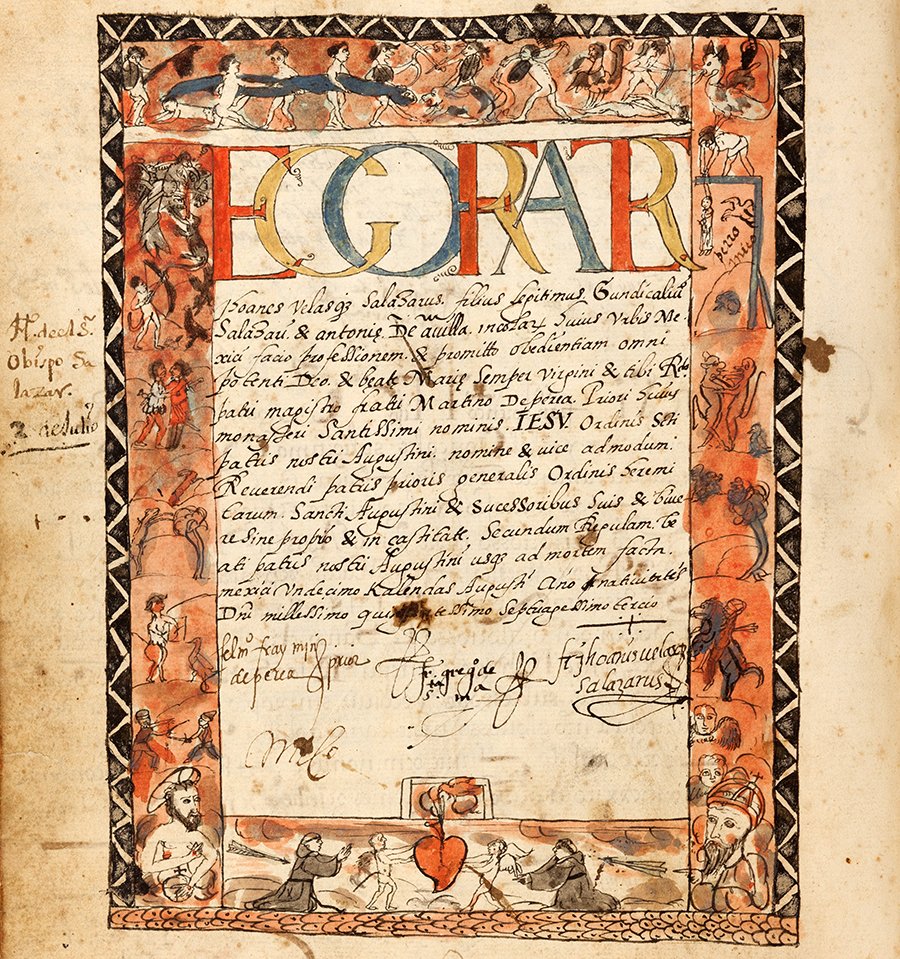 EGO FRATER
Jhoanes Velasqz Salazarus. filius legitimus Gundisalui
Salazari. & antonię De auilla. incolar huius Urbis Me
xici facio professionem. & promitto obedientiam omni
potenti Deo. & beatę Marię semper virgini & tibi Rdo
patri magistro fratri Martino De perea. Priori huius
monasteri Santissimi nominis. IESV. Ordinis Scti
patris nostri Augustini. nomine & vice admodum.
Reverendi patris prioris generalis Ordinis heremi
tarum. Sancti Augustini & sucessoribus suis & vive
re sine proprio & in castitate. secundum Regulam. be
ati patris nostri Augustini usqz ad mortem. facta.
mexici Undecimo Kalendas Augusti Año a nativitatis
Dni millessimo quingentessimo septuagessimo tercio
felmo fray min
de perea prior
fr. gregº de
s.
ma
fr. Jhoanis velasqz
Salazarus
perro
mico
H. del Sr.
Obispo Sa
lazar.
2 de Julio